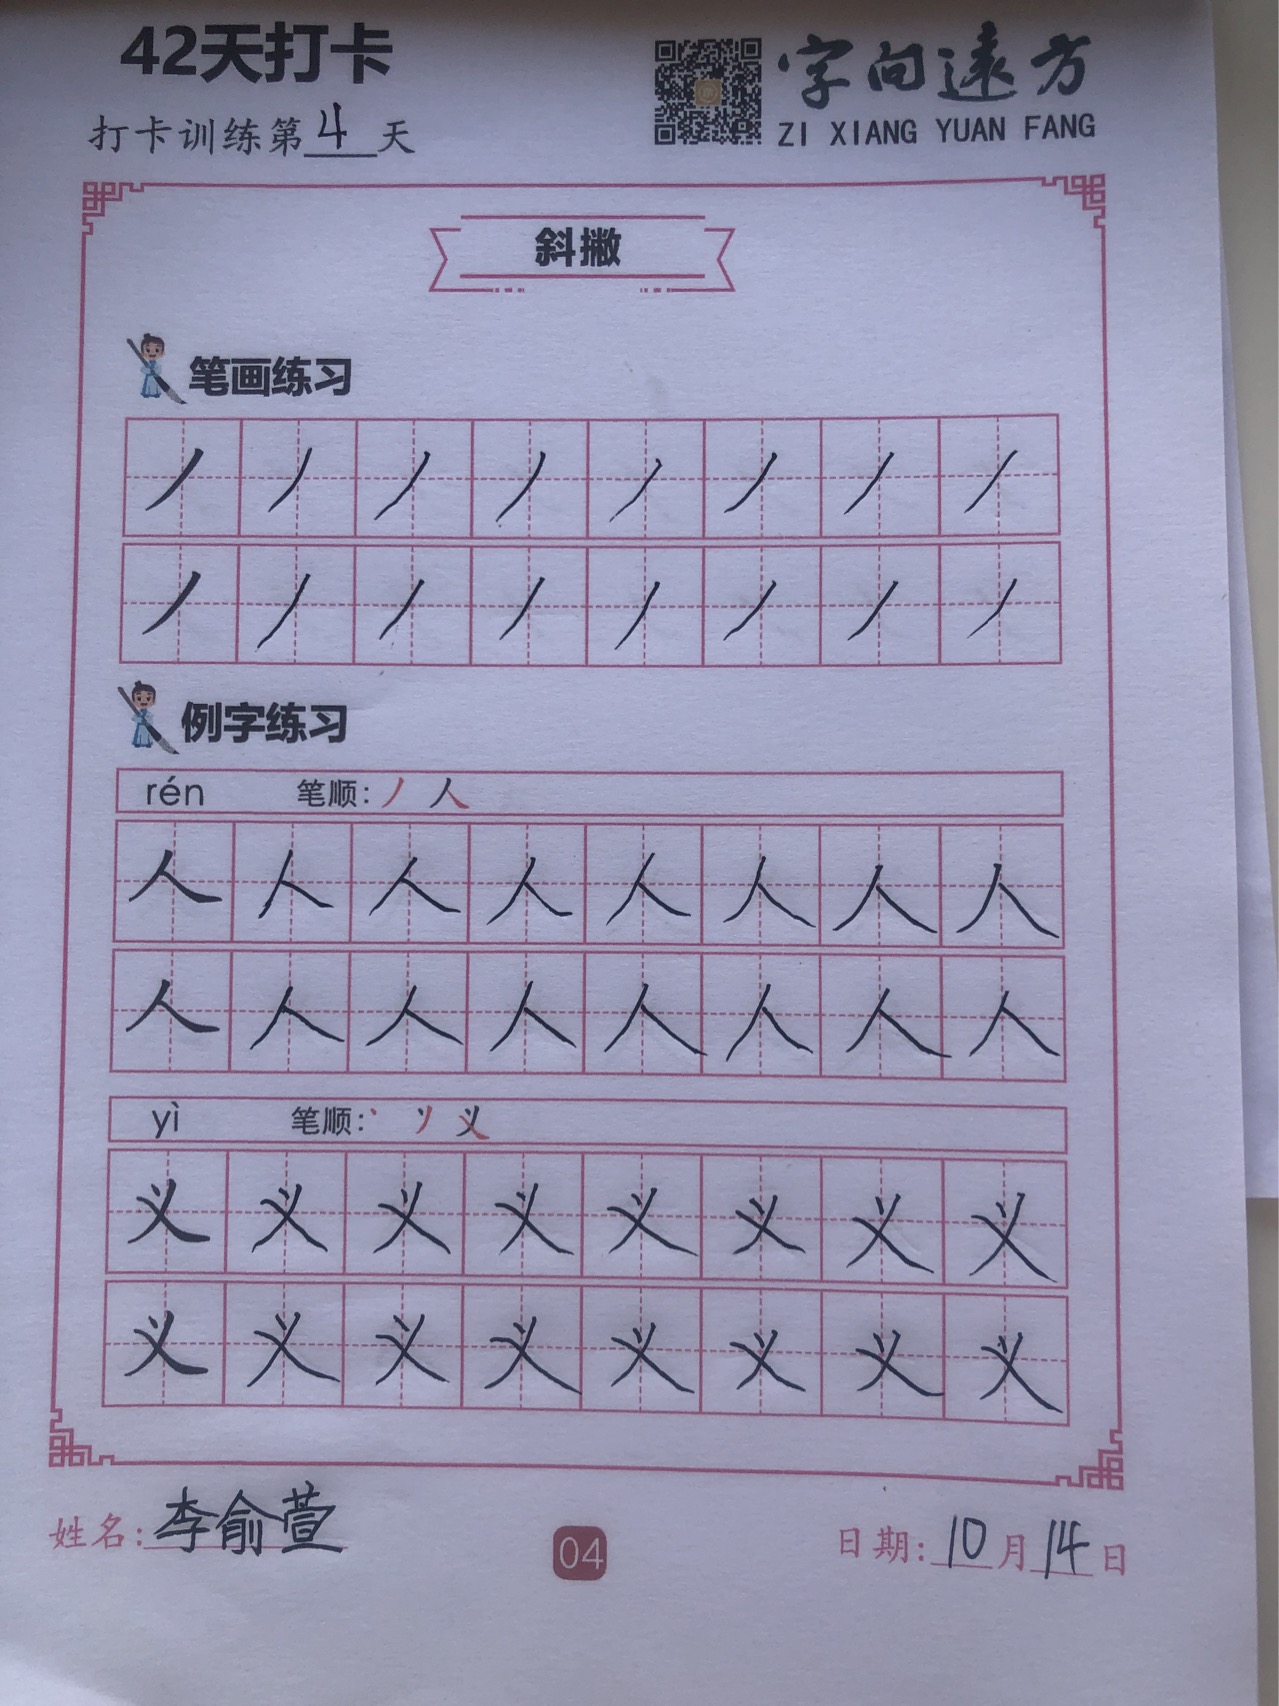 42天打卡
字向遠方
打卡训练第4天
ZI XIANG YUAN FANG
斜撇
笔画练习
丿 丿 丿 丿 丿 丿 丿 丿
丿 丿 丿 丿 丿 丿 丿 丿
例字练习
rén 笔顺: 丿 人
人 人 人 人 人 人 人 人
人 人 人 人 人 人 人 人
yì 笔顺: 丶 丷 义
义 义 义 义 义 义 义 义
义 义 义 义 义 义 义 义
姓名: 李俞萱
04
日期: 10月14日